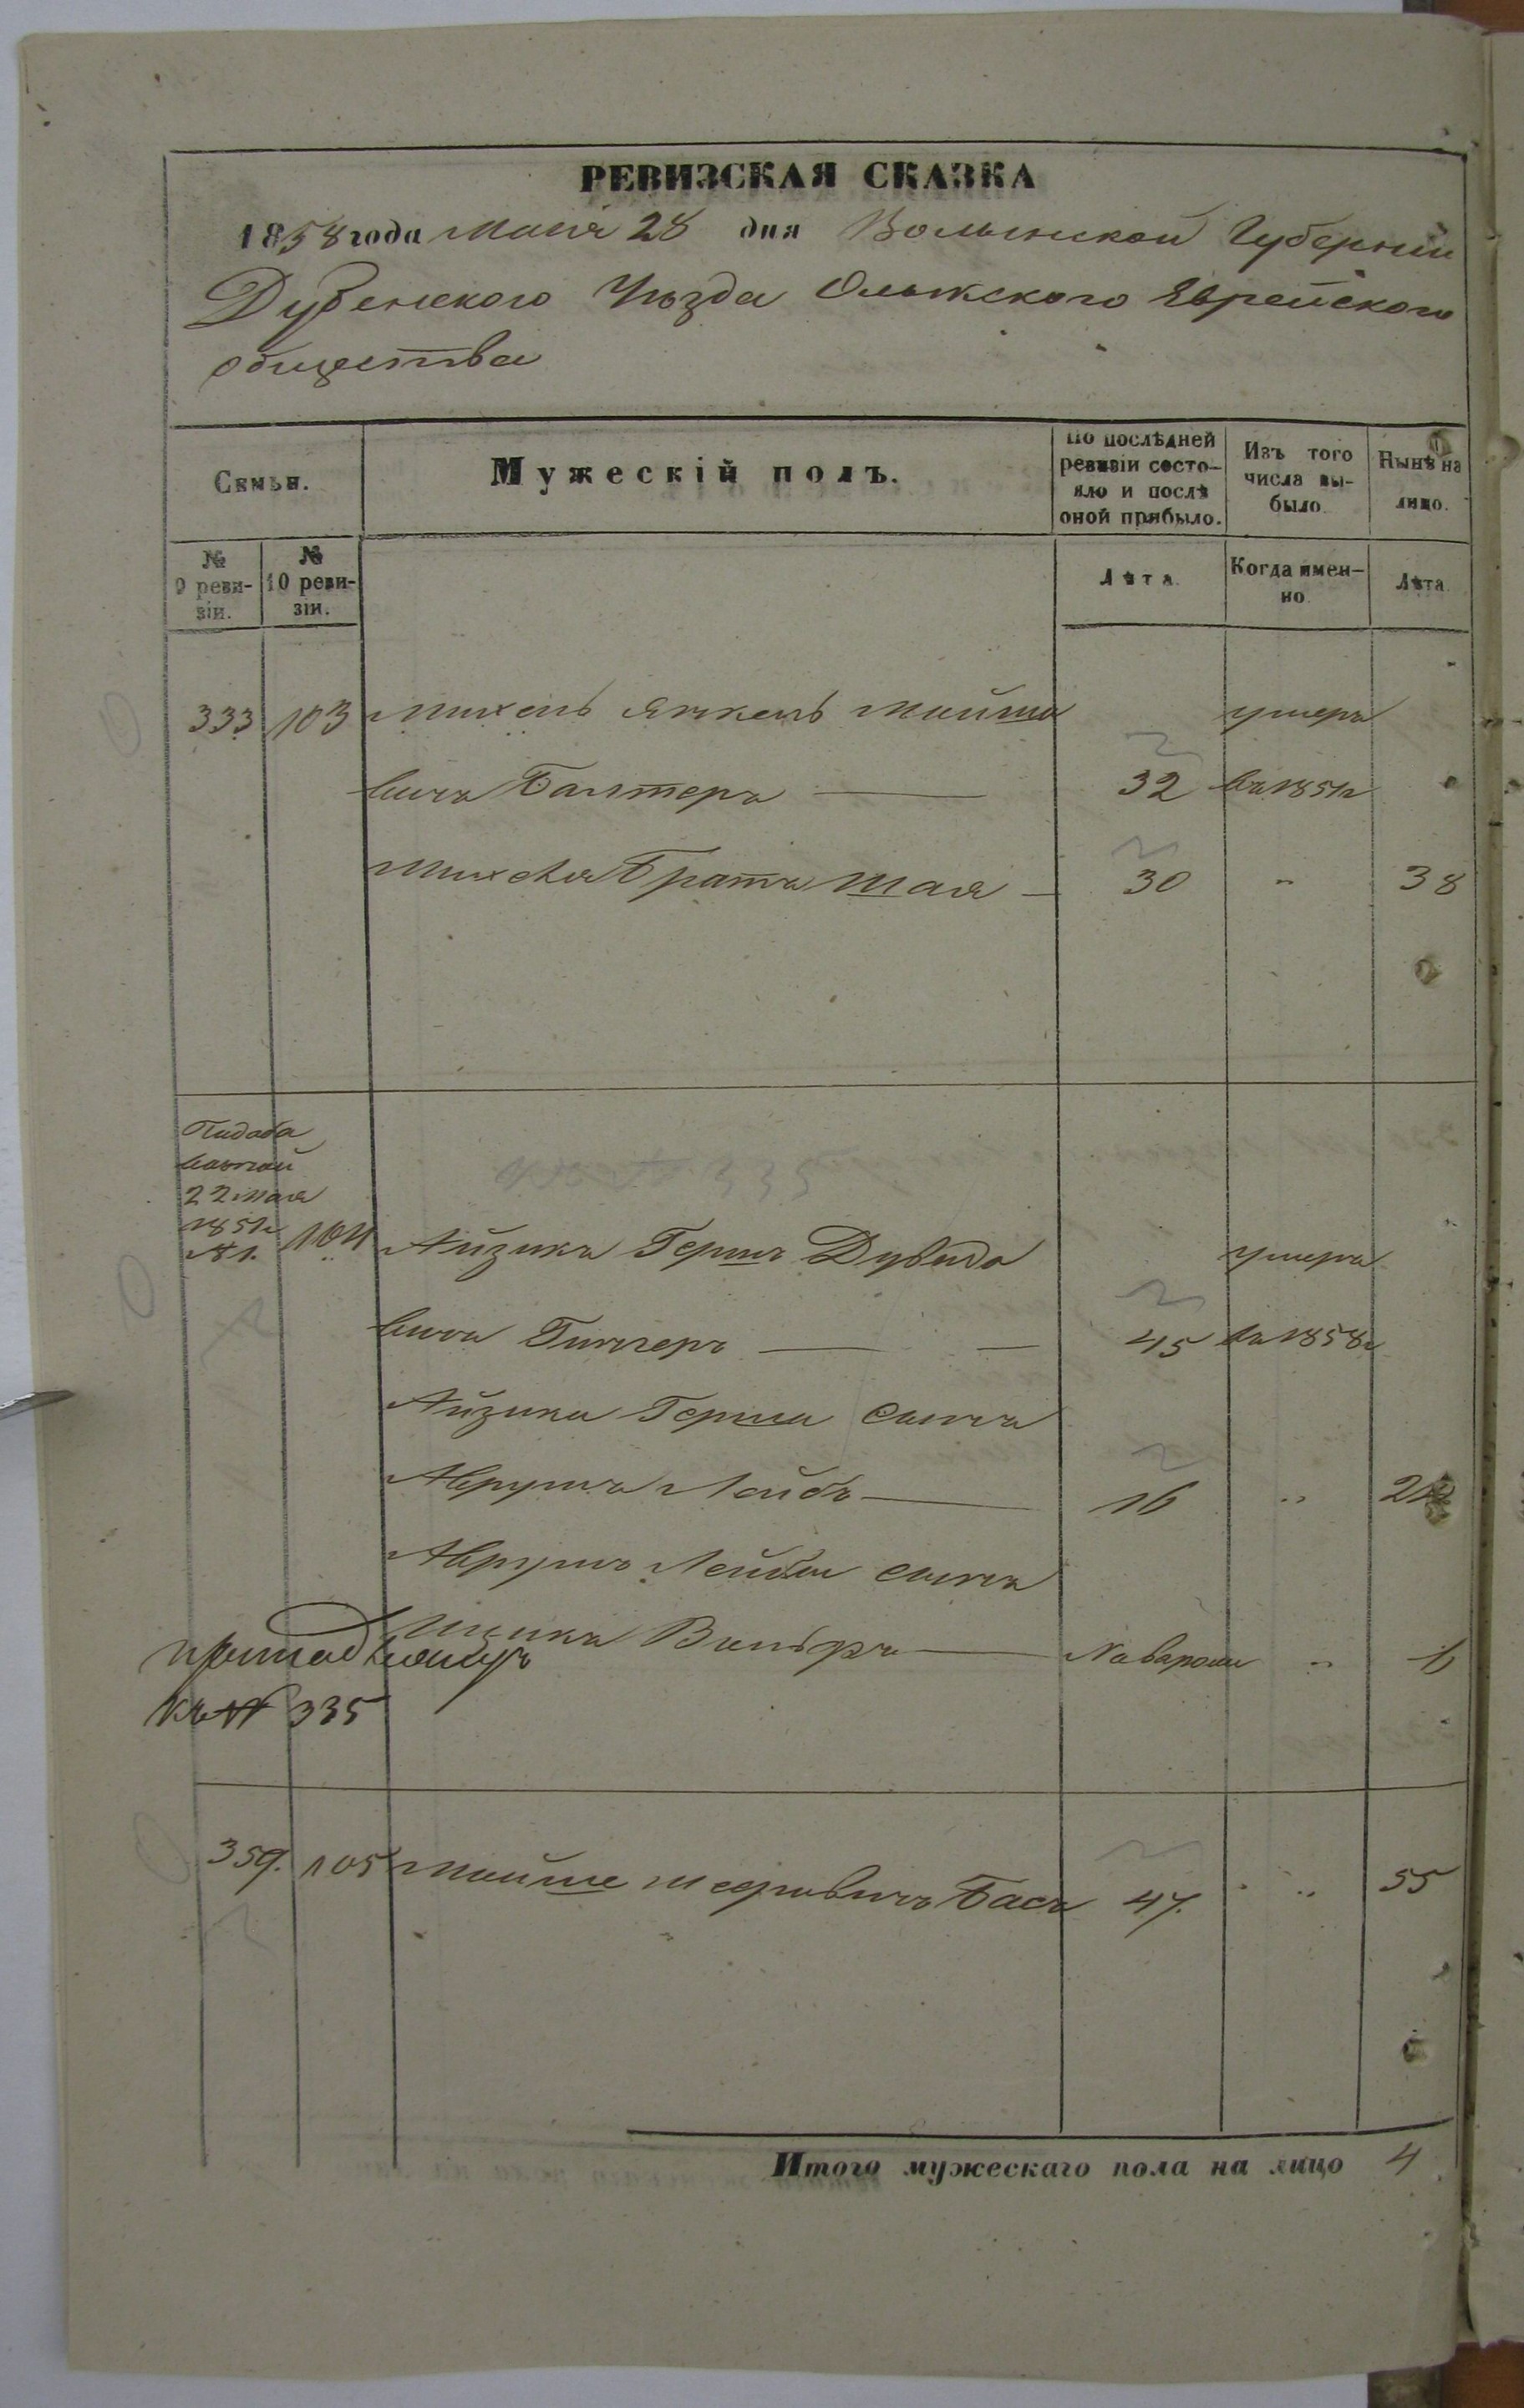 РЕВИЗСКАЯ СКАЗКА
1858 года Маия 28 дня Волынской Губернии
Дубенского Уѣзда Олыкского Еврейского
общества
Семьи.
Мужескій полъ.
По послѣдней ревизіи состояло и послѣ оной прибыло.
Изъ того числа выбыло.
Нынѣ на лицо.
№ 9 ревизіи.
№ 10 ревизіи.
Лѣта.
Когда именно.
Лѣта.
333 103 Михель Янкель Мойшо умеръ
вичъ Балтеръ 32 въ 1851г
Михеля Братъ Шая 30 " 38
22 Мая
1851г
№ 1. 104 Айзикъ Гершъ Дувидо умеръ
вичъ 45 въ 1858г
Айзика Герша Сынъ
Аврумъ Лейбъ 16 " 24
Аврумъ Лейбы сынъ
Ицикъ Вольфъ 1
къ № 335
359. 105 Мойше Шефтовичъ Басъ 47. " 55
Итого мужескаго пола на лицо 4